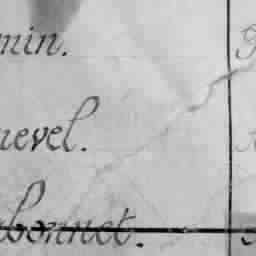 min.
nevel.
bonnet.